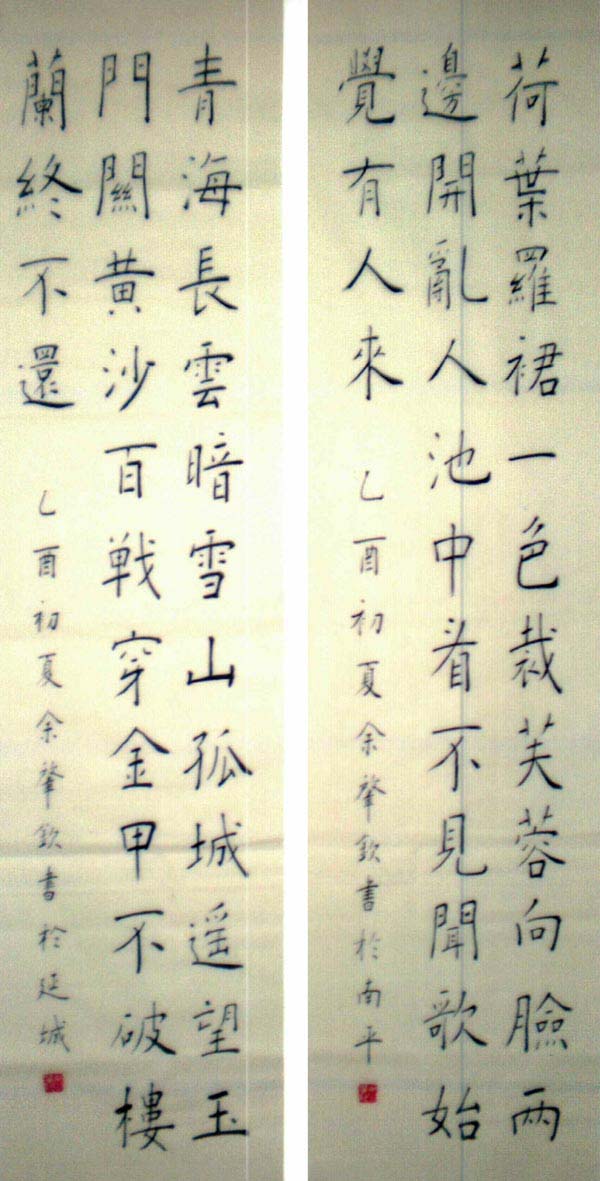 荷葉羅裙一色裁芙蓉向臉兩
邊開亂人池中看不見聞歌始
覺有人來
乙酉初夏余肇欽書於南平
青海長雲暗雪山孤城遥望玉
門關黄沙百戰穿金甲不破樓
蘭終不還
乙酉初夏余肇欽書於延城